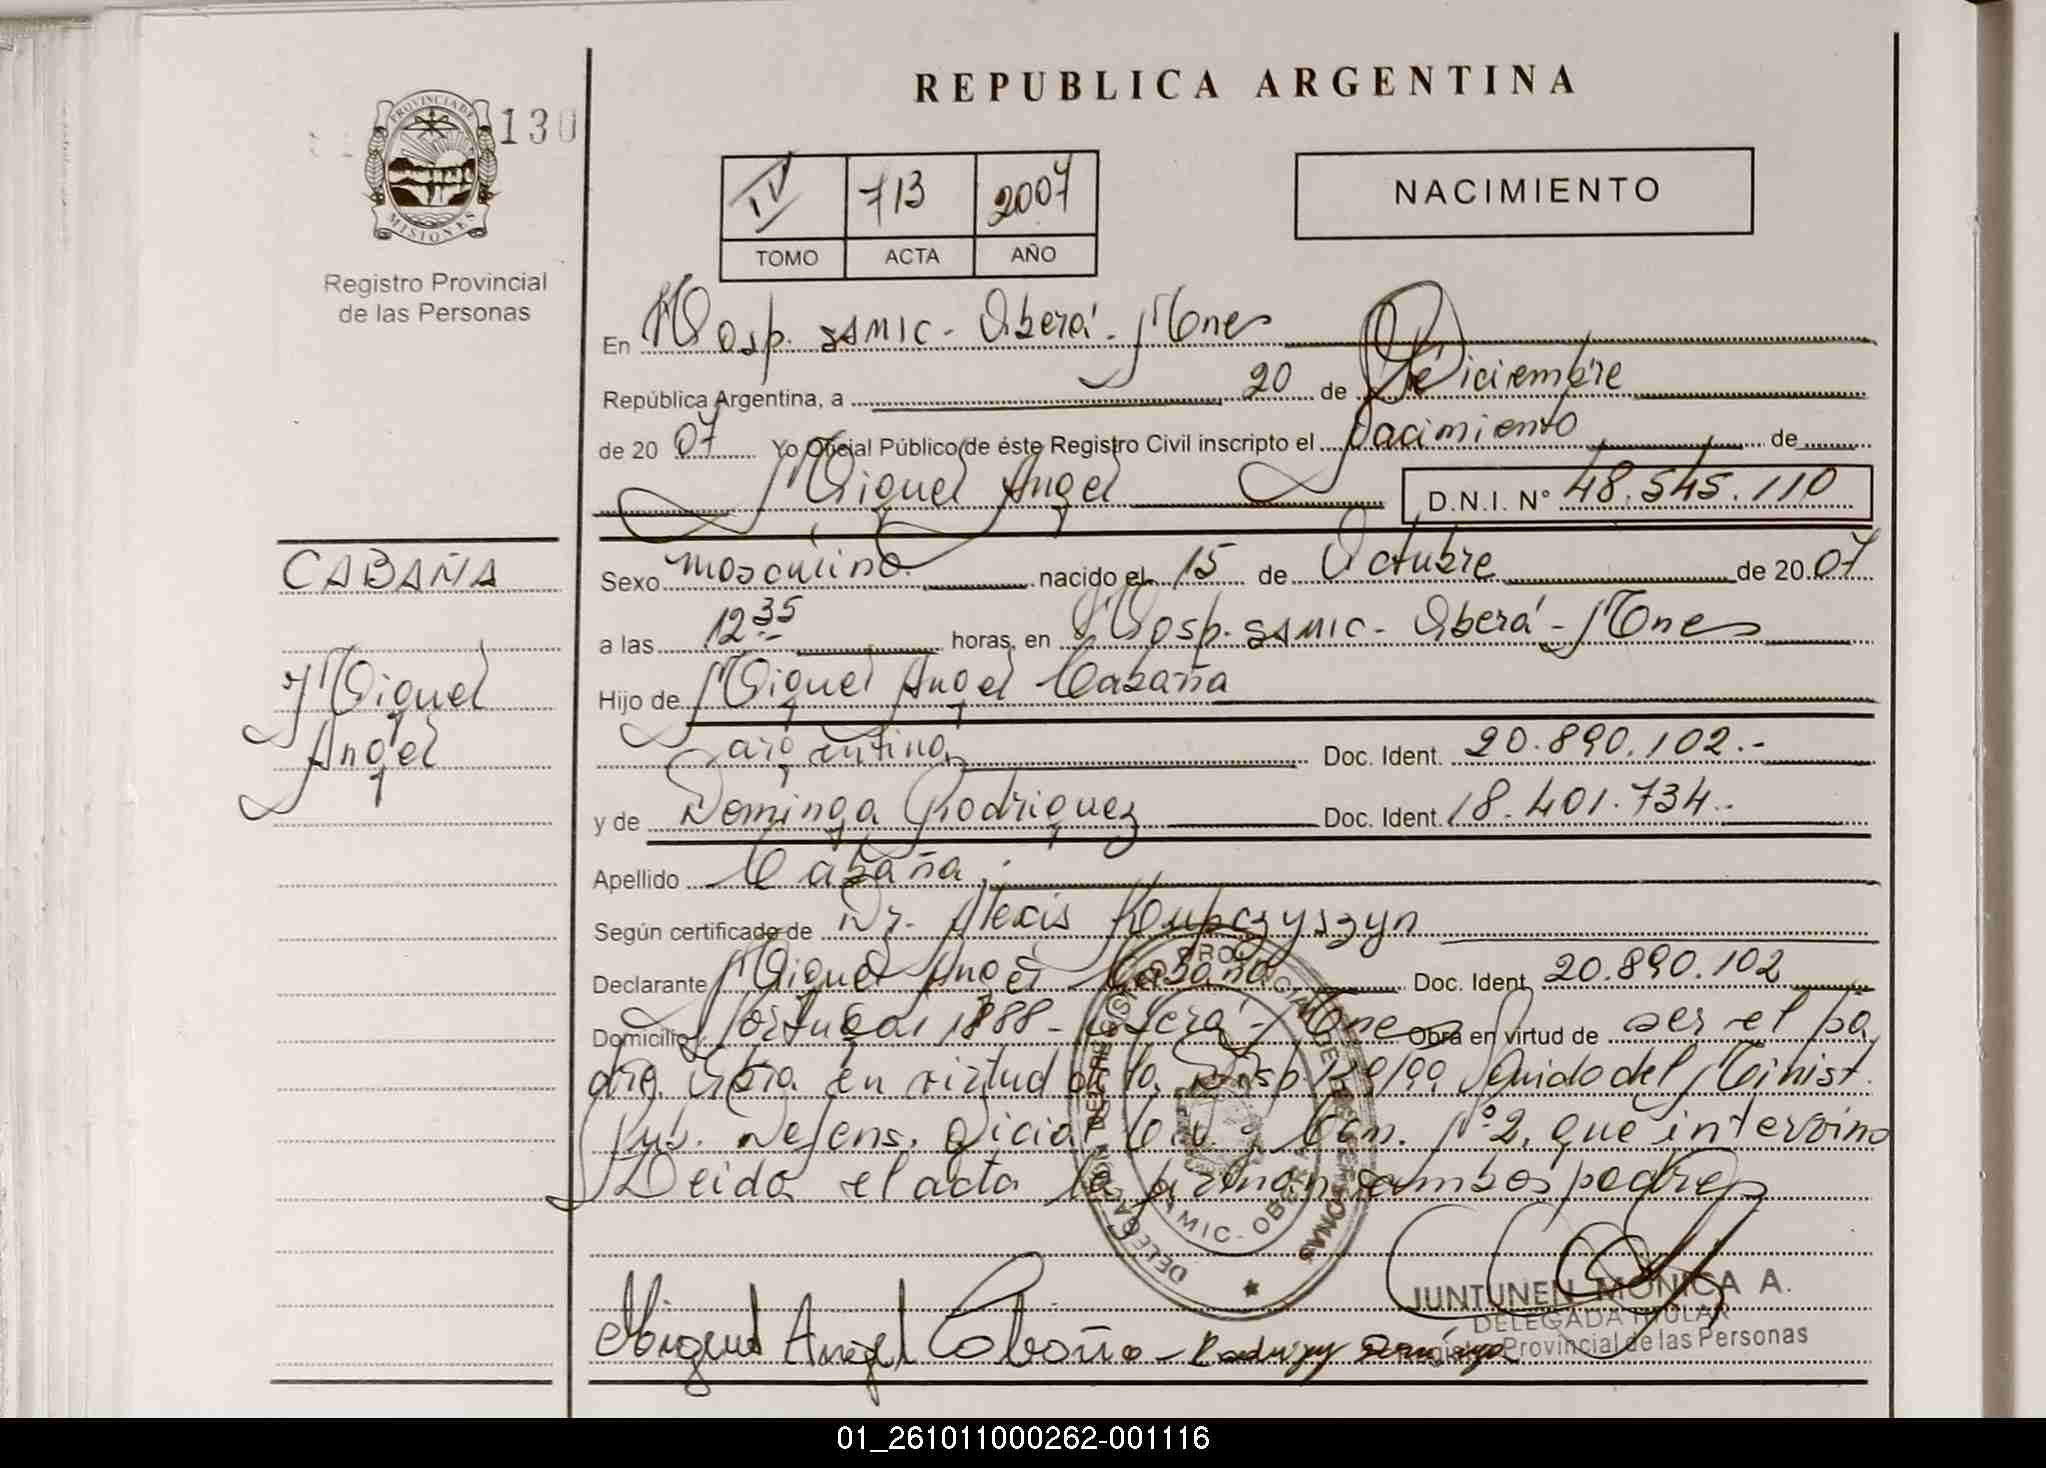 REPUBLICA ARGENTINA
PROVINCIA DE
MISIONES
130
Registro Provincial
de las Personas
IV 713 2007
TOMO ACTA AÑO
NACIMIENTO
En Hosp. SAMIC - Oberá - Mnes
República Argentina, a 20 de Diciembre
de 20 07 Yo Oficial Público de éste Registro Civil inscripto el Nacimiento de
Miguel Angel D.N.I. Nº 48.545.110
CABAÑA
Miguel
Angel
Sexo masculino nacido el 15 de Octubre de 20 07
a las 12 35 horas, en Hosp. SAMIC - Oberá - Mnes
Hijo de Miguel Angel Cabaña
argentina Doc. Ident. 20.890.102.-
y de Dominga Rodriguez Doc. Ident. 18.401.734.-
Apellido Cabaña.
Según certificado de Dr. Alexis Kupczyszyn
Declarante Miguel Angel Cabaña Doc. Ident. 20.890.102
Domicilio Portugal 1888 - Oberá - Mnes Obra en virtud de ser el pa
dre. Obra en virtud a la Disp. 120/99 del Minist.
Pub. Defens. Oficial Civ. y Com. Nº 2, que intervino
Leida el acta la firman ambos padres
DELEGACION DEL REGISTRO PROVINCIAL DE LAS PERSONAS
SAMIC - OBERA
JUNTUNEN MONICA A.
DELEGADA TITULAR
Registro Provincial de las Personas
Miguel Angel Cabaña -
01_261011000262-001116